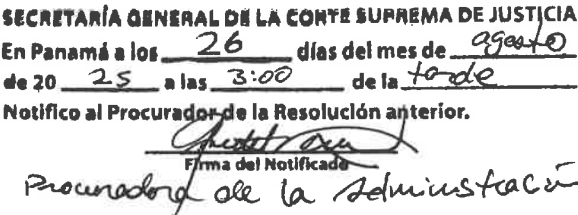 SECRETARÍA GENERAL DE LA CORTE SUPREMA DE JUSTICIA
En Panamá a los 26 días del mes de agosto
de 20 25 a las 3:00 de la tarde
Notifico al Procurador de la Resolución anterior.
Firma del Notificado
Procuradora de la Administración